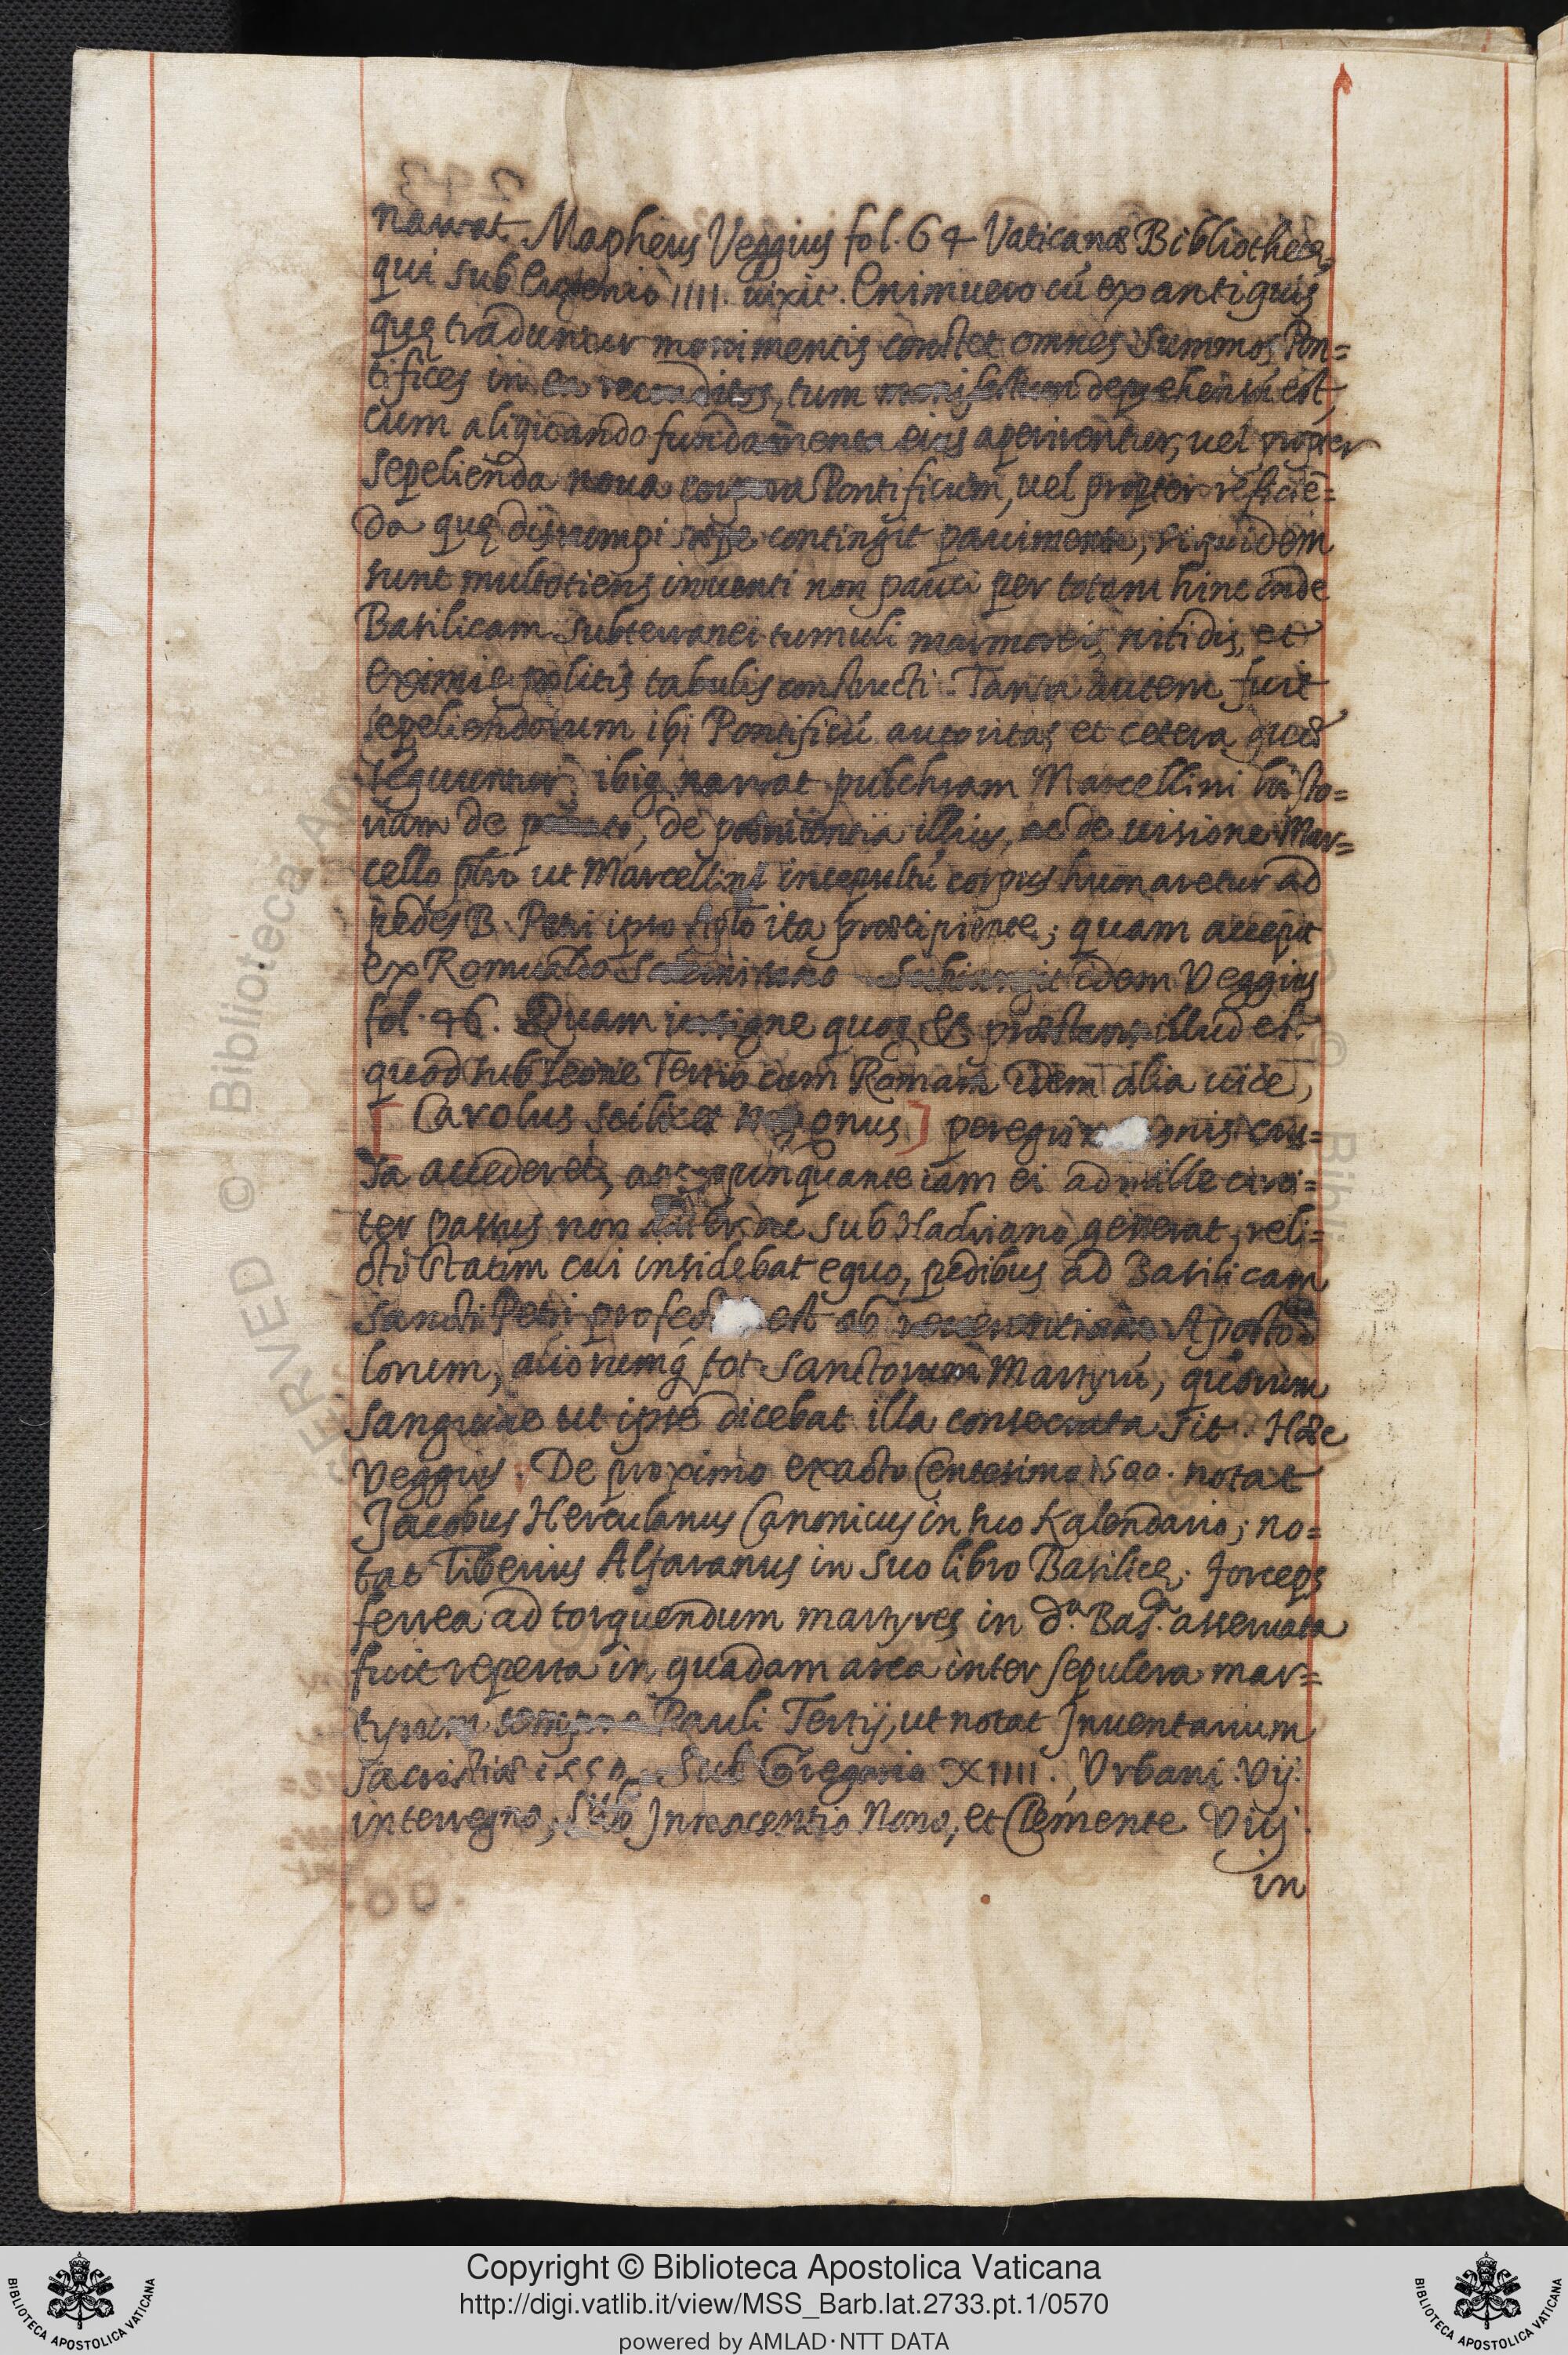 narrat Mapheus Veggius fol. 64 Vaticanæ Bibliothecę,
qui sub Eugenio IIII. uixit. Enimuero cū ex antiquis
quę traduntur monimentis constet omnes summos Pon=
tifices in ea reconditos, tum manifestum deprehensū est,
cum aliquando fundamenta eius aperirentur, uel propter
sepelienda noua corpora Pontificum, uel propter reficiē=
da quę disrumpi sæpe contingit pauimenta, siquidem
sunt multotiens inuenti non pauci per totam hinc inde
Basilicam subterranei tumuli marmoreis, nitidis, et
eximię politis tabulis constructi. Tanta autem fuit
sepeliendorum ibi Pontificū autoritas et cetera quæ
sequuntur; ibiq narrat pulchram Marcellini histo=
riam de peccato, de pœnitentia illius, ac de uisione Mar=
cello pbro ut Marcellini insepultū corpus humaretur ad
pedes B. Petri ipso Apto ita præcipiente; quam accepit
ex Romualdo Salernitano Subiungit idem Veggius
fol. 46. Quam insigne quoq & præstans illud est
quod sub Leone Tertio cum Romam idem alia uice,
[Carolus scilicet Magnus] peregrin onis cau=
sa accederet, appropinquante iam ei ad mille circi=
ter passus non aliter ac sub Hadriano generat, reli=
cto statim cui insidebat equo, pedibus ad Basilicam
sancti Petri profec est ob reuerentiam Aposto=
lorum, aliorumq tot sanctorum Martyrū, quorum
sanguine ut ipse dicebat illa consecrata sit. Hæc
Veggius. De proximo exacto Centesimo 1500. notat
Jacobus Herculanus Canonicus in suo Kalendario; no=
tat Tiberius Alfaranus in suo libro Basilicę. forceps
ferrea ad torquendum martyres in d.ᵃ Bas.ᵃ asseruata
fuit reperta in quadam arca inter sepulcra mar=
tyrum tempore Pauli Tertij, ut notat Inuentarium
sacristiæ 1550. Sub Gregorio XIIII., Urbani Vij.
interregno, sub Innocentio Nono, et Clemente Viij.
in
Copyright © Biblioteca Apostolica Vaticana
http://digi.vatlib.it/view/MSS_Barb.lat.2733.pt.1/0570
powered by AMLAD·NTT DATA